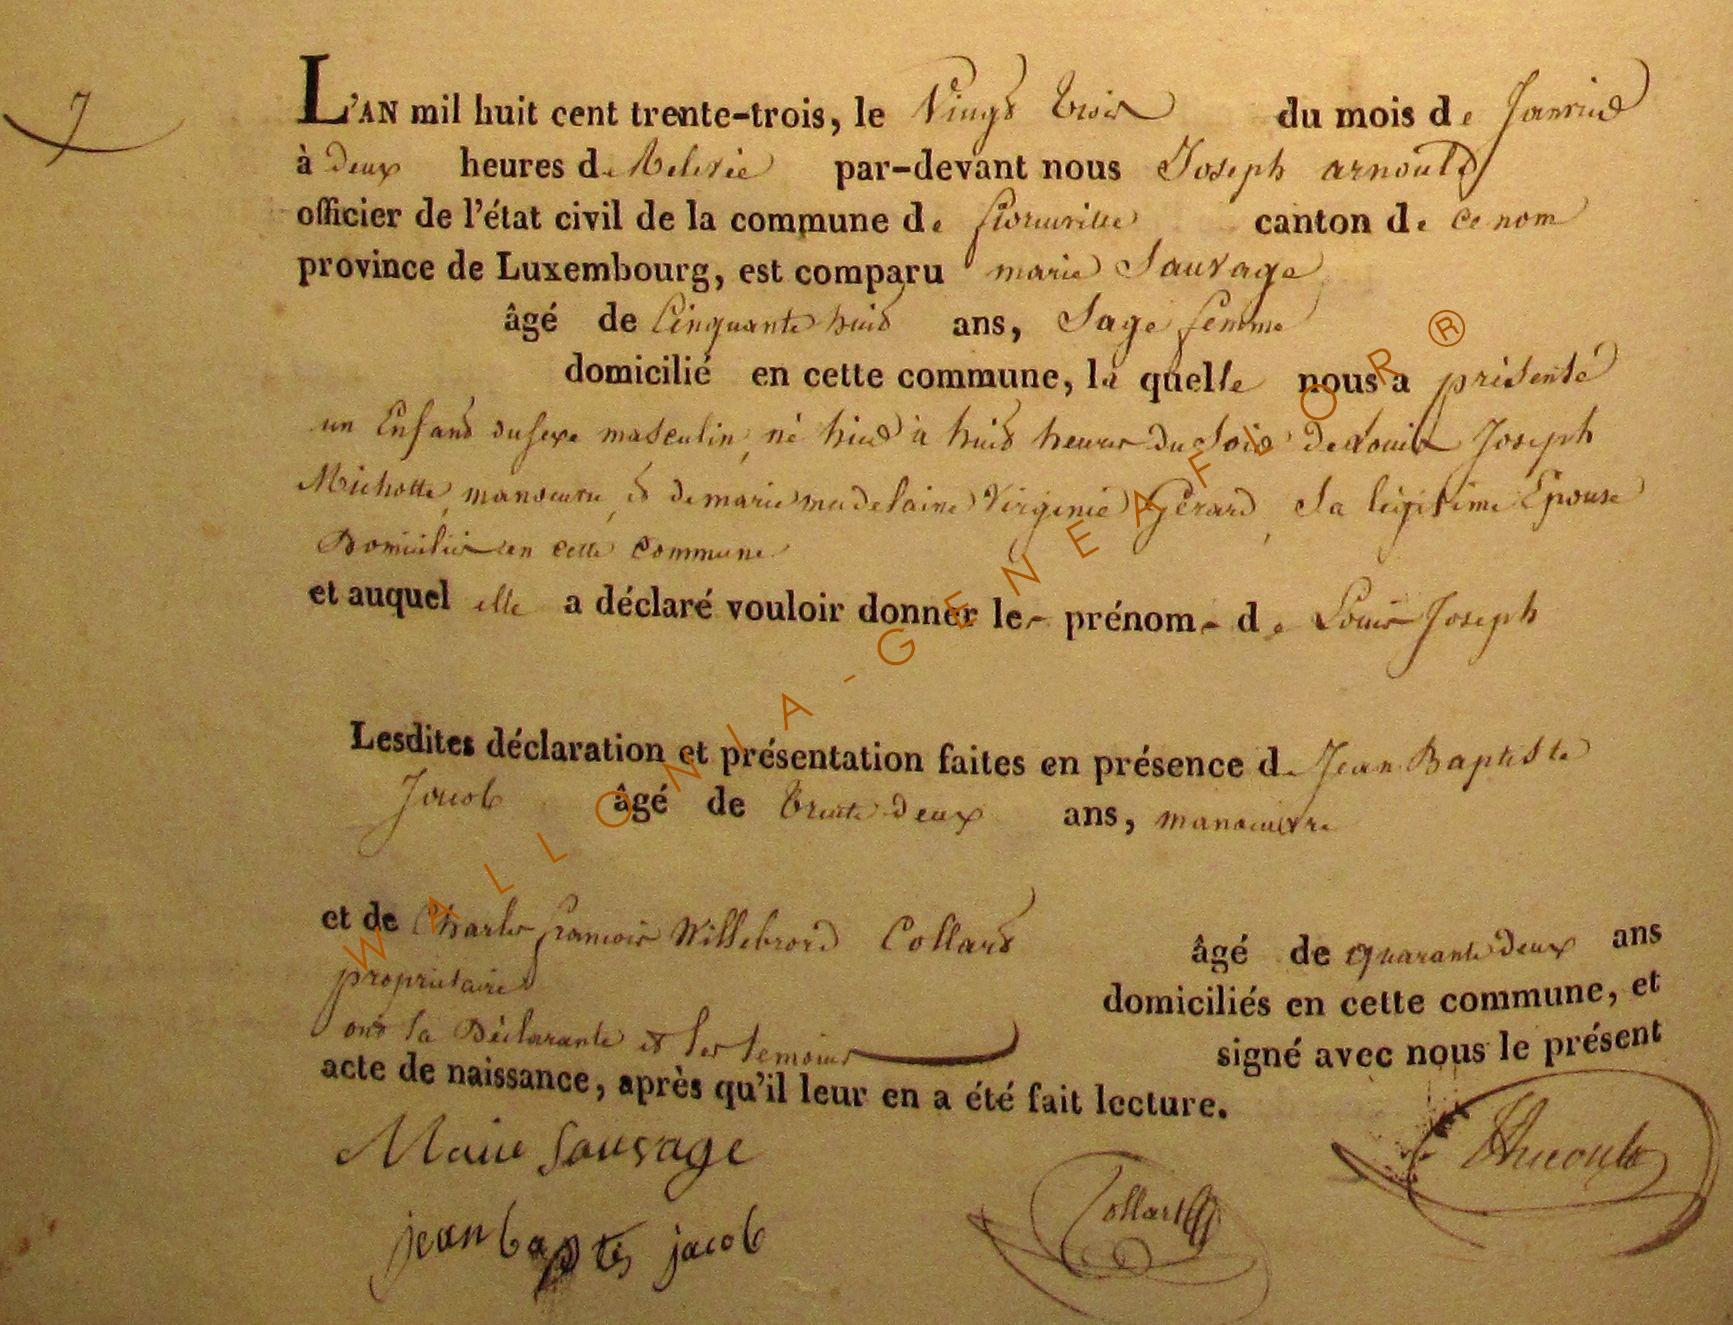 7
L'AN mil huit cent trente-trois, le Vingt trois du mois de Janvier
à deux heures de Relevée par-devant nous Joseph arnould
officier de l'état civil de la commune de florenville canton de ce nom
province de Luxembourg, est comparu marie Sauvage
âgé de Cinquante huit ans, Sage femme
domicilié en cette commune, la quelle nous a présenté
un Enfant du sexe masculin, né hier à huit heures du Soir de Louis Joseph
Michotte, manoeuvre, et de marie madelaine Virginie Gérard, Sa légitime Epouse
Domiciliés en cette commune
et auquel elle a déclaré vouloir donner le prénom de Louis Joseph
Lesdites déclaration et présentation faites en présence de Jean Baptiste
Jacob âgé de trente deux ans, manoeuvre
et de Charles françois Willebrord Collard âgé de quarante deux ans
propriétaire domiciliés en cette commune, et
ont la Déclarante et les temoins signé avec nous le présent
acte de naissance, après qu'il leur en a été fait lecture.
Marie Sauvage
jean baptis jacob
Collart
WALLONIA-GENEAFLOR®